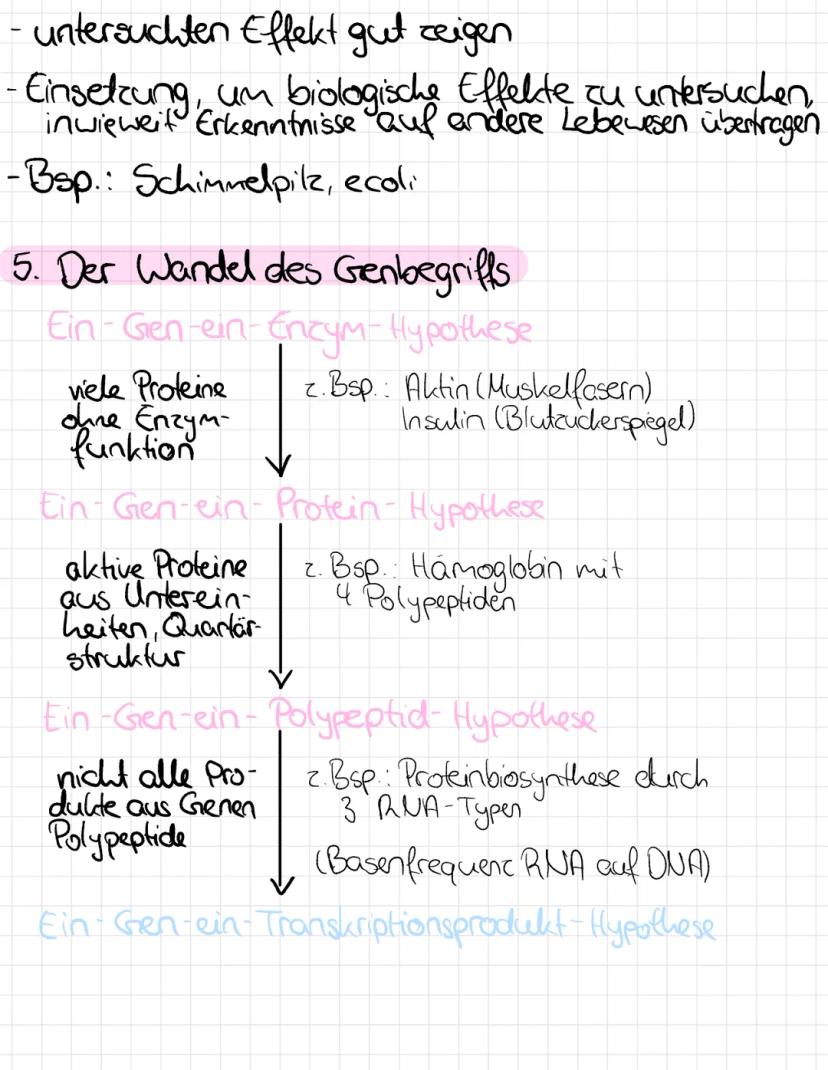 - untersuchten Effekt gut zeigen
- Einsetzung, um biologische Effekte zu untersuchen,
inwieweit Erkenntnisse auf andere Lebewesen übertragen
- Bsp.: Schimmelpilz, ecoli
5. Der Wandel des Genbegriffs
Ein-Gen-ein-Enzym-Hypothese
viele Proteine
ohne Enzym-
funktion
z.Bsp.: Aktin (Muskelfasern)
Insulin (Blutzuckerspiegel)
Ein-Gen-ein-Protein-Hypothese
aktive Proteine
aus Unterein-
heiten, Quartär-
struktur
z.Bsp.: Hämoglobin mit
4 Polypeptiden
Ein-Gen-ein-Polypeptid-Hypothese
nicht alle Pro-
dukte aus Genen
Polypeptide
z.Bsp.: Proteinbiosynthese durch
3 RNA-Typen
(Basenfrequenz RNA auf DNA)
Ein-Gen-ein-Transkriptionsprodukt-Hypothese